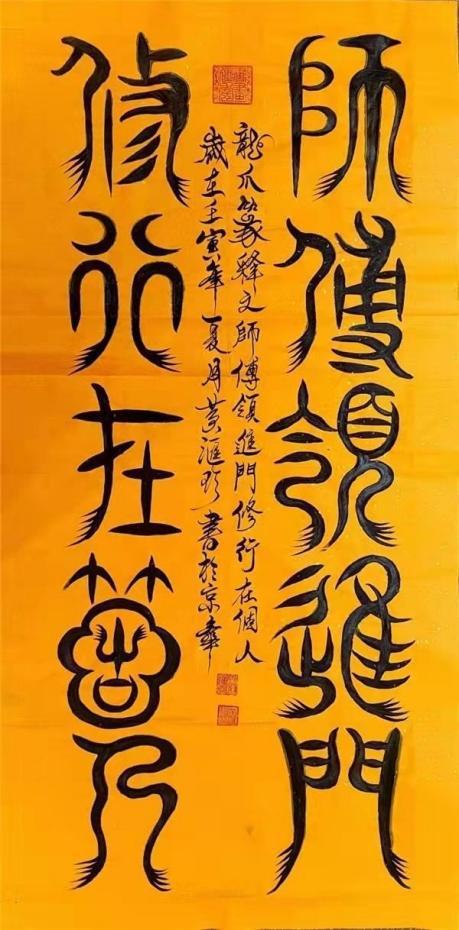 師傅領進門
修行在箇人
龍爪篆释文師傅領進門修行在個人
歲在壬寅年夏月黄滙珍書於京華